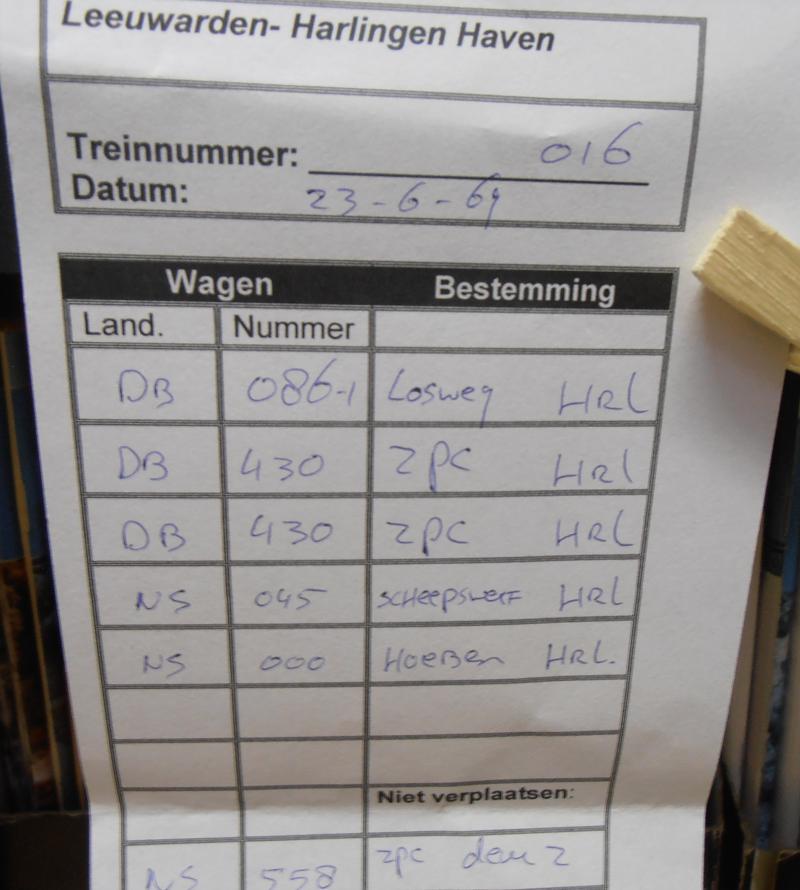 Leeuwarden- Harlingen Haven
Treinnummer: 016
Datum: 23-6-69
Wagen Bestemming
Land. Nummer
DB 086-1 Losweg HRL
DB 430 ZPC HRL
DB 430 ZPC HRL
NS 045 SCHEEPSWERF HRL
NS 000 HOEBEN HRL.
Niet verplaatsen:
NS 558 zpc deur 2